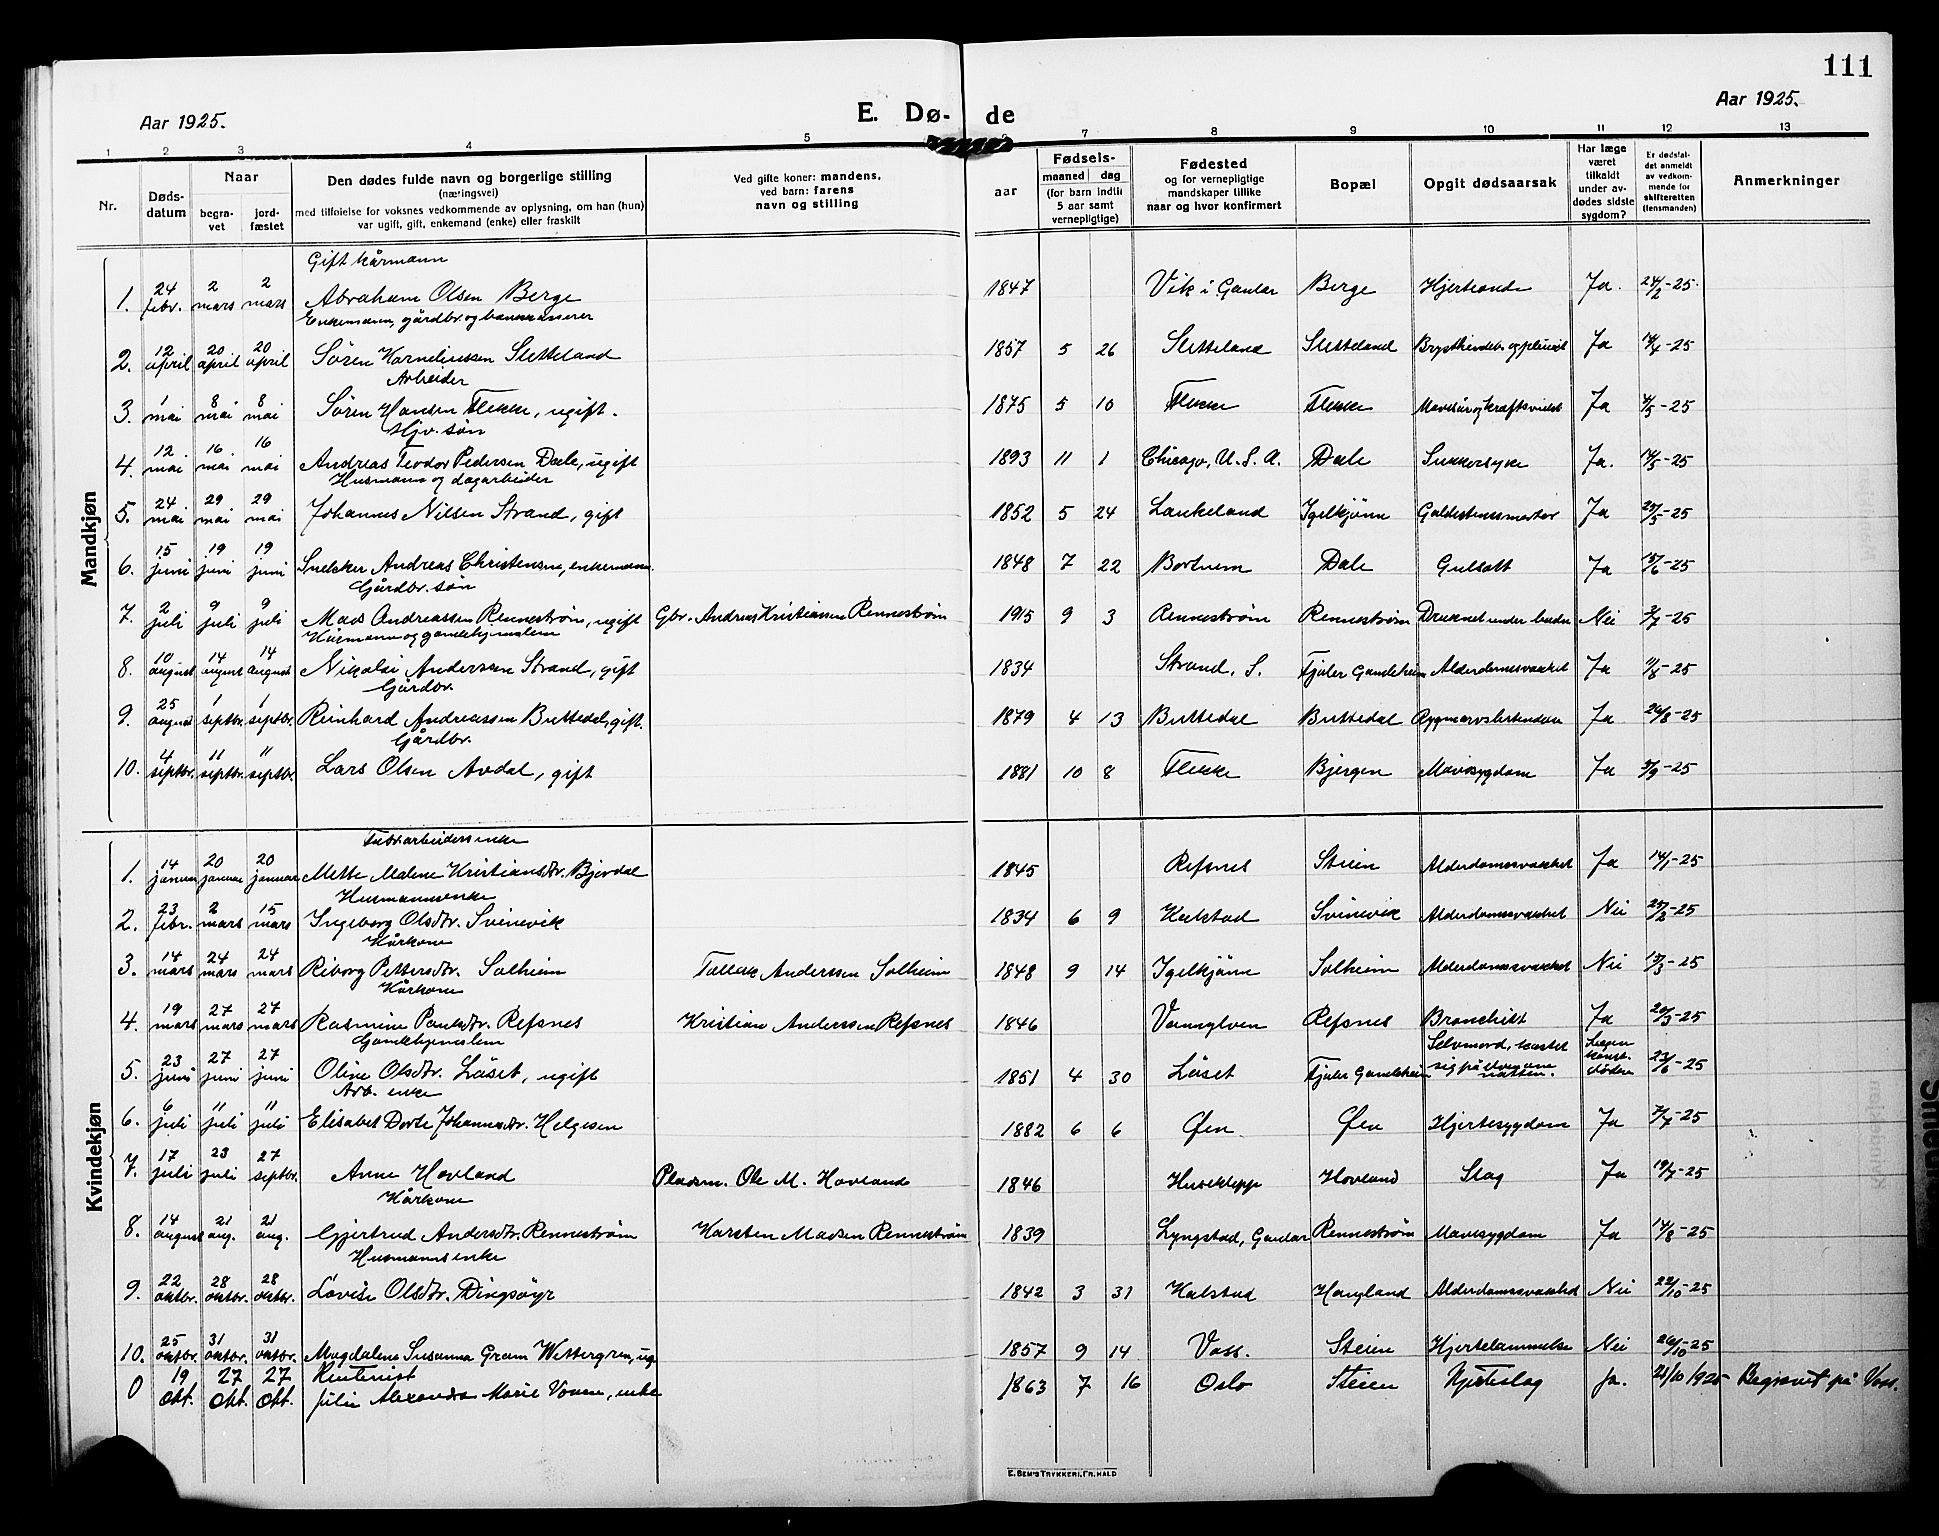 111
Aar 1925.
E. Dø- de
Aar 1925.
1 2 3 4 5 6 7 8 9 10 11 12 13
Nr.
Døds-
datum
Naar
begra-
vet
jord-
fæstet
Den dødes fulde navn og borgerlige stilling
(næringsvei)
med tilføielse for voksnes vedkommende av oplysning, om han (hun)
var ugift, gift, enkemand (enke) eller fraskilt
Ved gifte koner: mandens,
ved barn: farens
navn og stilling
Fødsels-
aar
maaned dag
(for barn indtil
5 aar samt
vernepligtige)
Fødested
og for vernepligtige
mandskaper tillike
naar og hvor konfirmert
Bopæl
Opgit dødsaarsak
Har læge
været
tilkaldt
under av-
dødes sidste
sygdom?
Er dødsfal-
det anmeldt
av vedkom-
mende for
skifteretten
(lensmanden)
Anmerkninger
Mandkjøn
Gift kårmann
1. 24 febr. 2 mars 2 mars Abraham Olsen Berge 1847 Vik i Gaular Berge Hjerteonde Ja. 24/2-25.
Enkemann, gårdbr. og bankkasserer
2. 12 april 20 april 20 april Søren Korneliussen Sletteland 1857 5 26 Sletteland Sletteland Ja 14/4-25
Arbeider
3. 1 mai 8 mai 8 mai Søren Hansen Flekke, ugift. 1875 5 10 Flekke Flekke Ja 4/5-25
Hjv. søn
4. 12 mai 16 mai 16 mai Andreas Teodor Pedersen Dale, ugift 1893 11 1 Chicago, U.S.A. Dale Sukkersyke Ja. 14/5-25
Husmann og dagarbeider
5. 24 mai 29 mai 29 mai Johannes Nilsen Strand, gift 1852 5 24 Laukeland Igelkjønn Galdestenssmerter Ja 25/5-25
6. 15 juni 19 juni 19 juni Snekker Andreas Christensen, enkemann. 1848 7 22 Bortnem Dale Gulsott Ja 15/6-25
Gårdbr. søn
7. 2 juli 9 juli 9 juli Mads Andreassen Rennestrøm, ugift Gbr. Andreas Kristiansen Rennestrøm 1915 9 3 Rennestrøm Rennestrøm Druknet under badn. Nei 3/7-25
Kårmann og gamlehjemslem
8. 10 august 14 august 14 august Nikolai Anderssen Strand, gift 1834 Strand, S. Fjaler Gamleheim Alderdomssvakhet Ja 11/8-25
Gårdbr.
9. 25 august 1 septbr. 1 septbr. Reinhard Andreassen Buttedal, gift. 1879 4 13 Buttedal Buttedal Ja 26/8-25
Gårdbr.
10. 4 septbr. 11 septbr. 11 septbr. Lars Olsen Avdal, gift 1881 10 8 Flekke Bjergen Mavesygdom Ja 5/9-25
Kvindekjøn
Fabrarbeidersenke
1. 14 januar 20 januar 20 januar Mette Malene Kristiansdtr. Bjordal 1845 Refsnes Steien Alderdomssvakhet Ja 14/1-25
Husmannsenke
2. 23 febr. 2 mars 15 mars Ingeborg Olsdtr. Svinevik 1834 6 9 Kalstad Svinevik Alderdomssvakhet Nei 25/2-25
Kårkone
3. 14 mars 24 mars 24 mars Riborg Pettersdtr. Solheim Tollak Anderssen Solheim 1848 9 14 Igelkjønn Solheim Alderdomssvakhet Nei 17/3-25
Kårkone
4. 19 mars 27 mars 27 mars Rasmine Paulsdtr. Refsnes Kristian Anderssen Refsnes 1846 Vannylven Refsnes Bronchitt Ja 20/3-25
Gamlehjemslem
5. 23 juni 27 juni 27 juni Oline Olsdtr. Løset, ugift 1851 4 30 Løset Fjaler Gamleheim Selvmord, kastet sig på elven om natten. Lægen konst. døden 23/6-25
Arb. enke
6. 6 juli 11 juli 11 juli Elisabet Dorte Johannesdtr. Helgesen 1882 6 6 Øen Øen Hjertesygdom Ja 7/7-25
7. 17 juli 23 juli 27 septbr. Anne Hovland Pladsm. Ole M. Hovland 1846 Huseklepp Hovland Slag Ja 19/7-25
Kårkone
8. 14 august 21 aug. 21 aug. Gjertrud Andersdtr. Rennestrøm Karsten Madsen Rennestrøm 1839 Lyngstad, Gaular Rennestrøm Mavesygdom Ja 14/8-25
Husmannsenke
9. 22 oktbr. 28 oktbr. 28 oktbr. Lovise Olsdtr. Dingsøyr 1842 3 31 Kalstad Haugland Alderdomssvakhet Nei 22/10-25
10. 25 oktbr. 31 oktbr. 31 oktbr. Magdalene Susanna Gram Wettergren, ug. 1857 9 14 Voss. Steien Hjertelammelse Nei 26/10-25
Rentenist
0 19 Okt. 27 Okt. 27 Okt. Julie Alexandra Marie Vonen, enke 1863 7 16 Oslo Steien Hjerteslag Ja. 21/10 1925 Begravet på Voss.
E. SEM'S TRYKKERI, FR.HALD